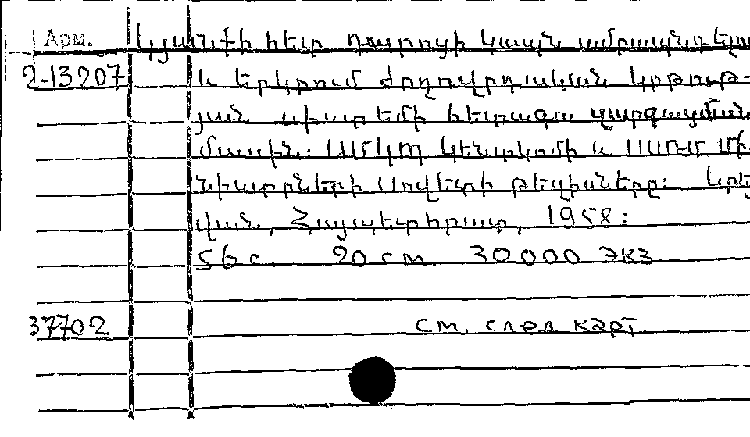 Арм. Կյանքի հետ դպրոցի կապն ամրապնդելու
2-13207 և երկրում ժողովրդական կրթութ-
յան սիստեմի հետագա զարգացման
մասին: ՍՄԿԿ Կենտկոմի և ՍՍՌՄ Մի-
նիստրների Սովետի թեզիսները: Երե-
վան, Հայպետհրատ, 1958:
56 с. 20 см. 30000 экз
37702 см. след карт.